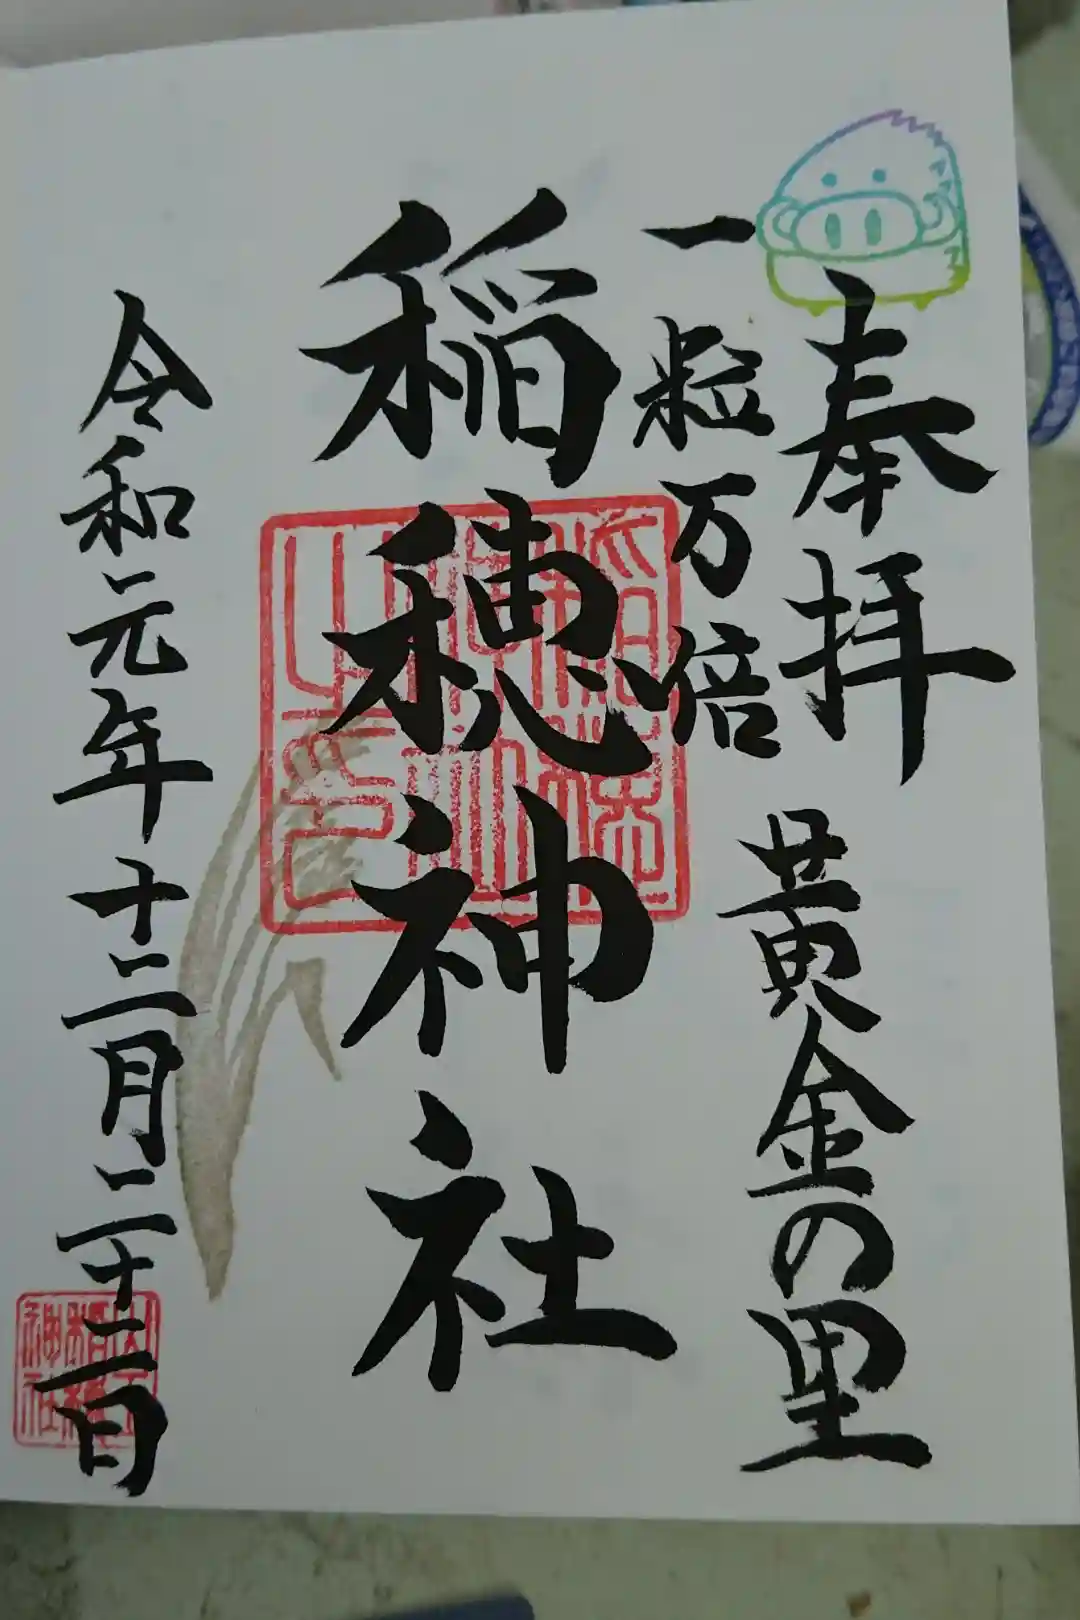 奉拝 黄金の里
一粒万倍
稲穂神社
令和元年十二月二十二日